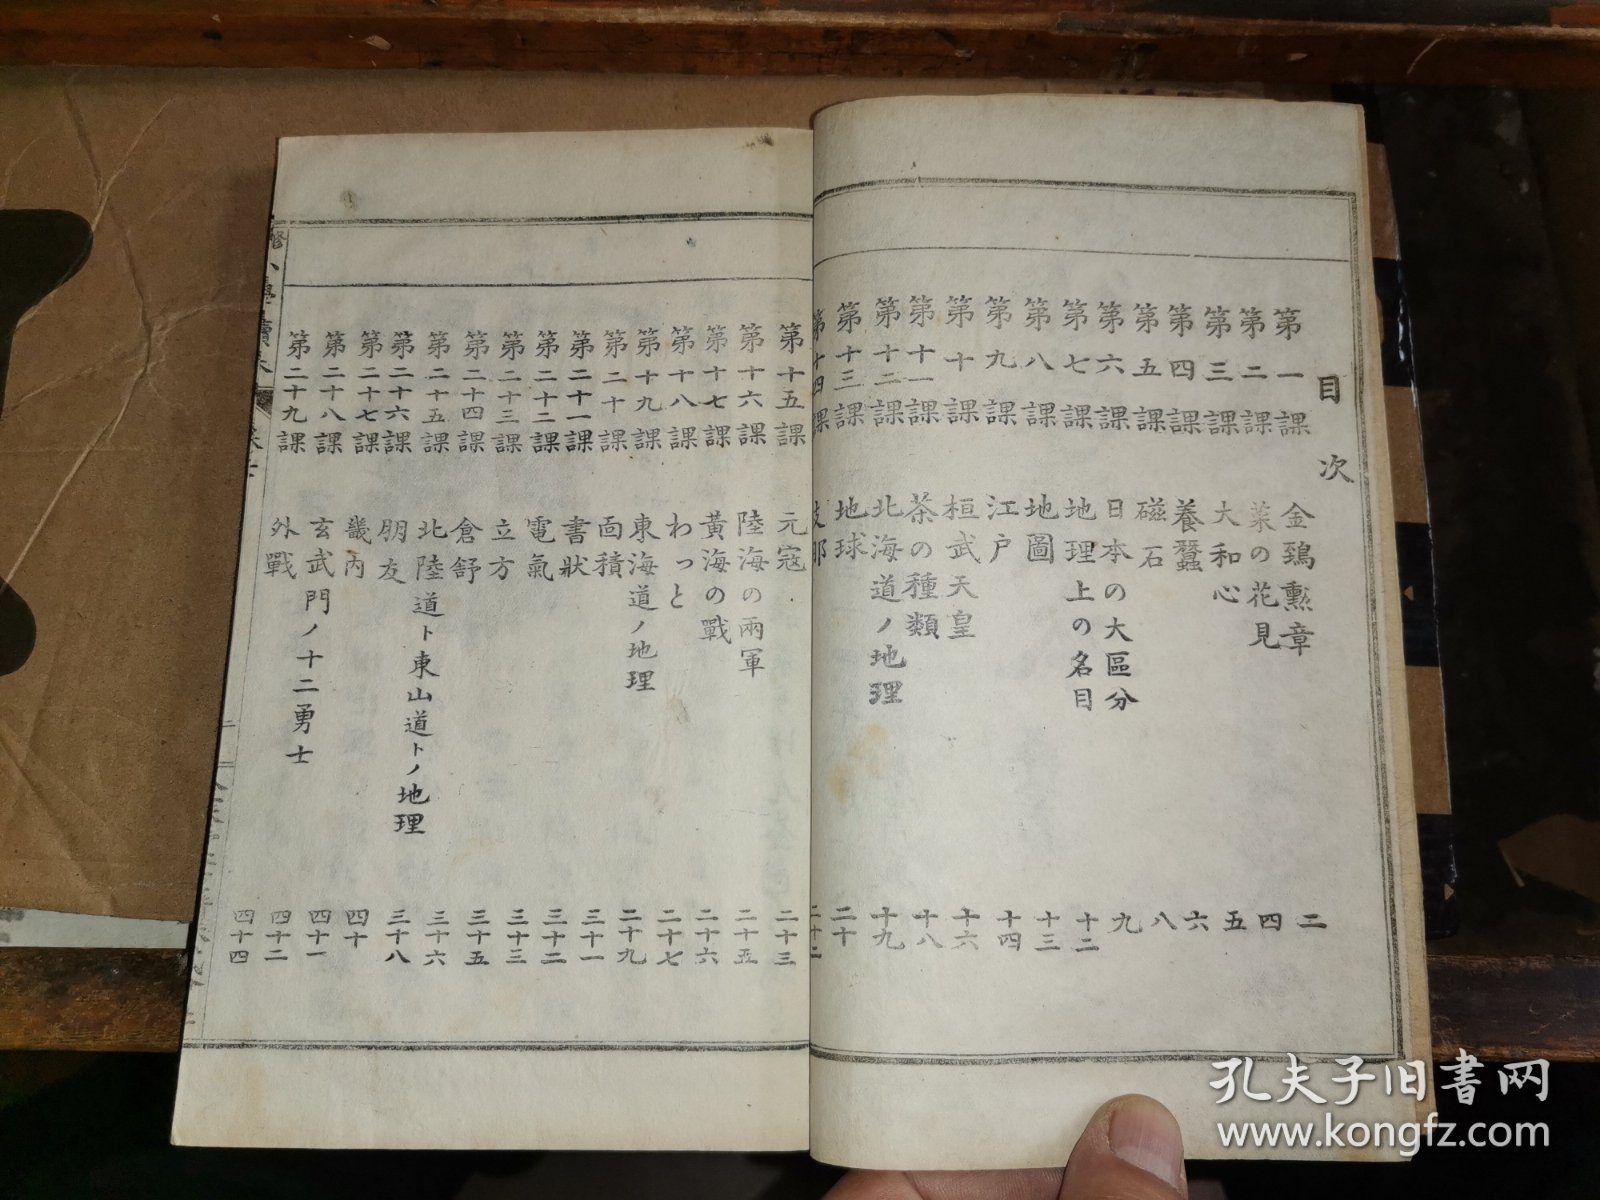 目次
第一課 金鵄勲章 二
第二課 菜の花見 四
第三課 大和心 五
第四課 養蠶 六
第五課 磁石 八
第六課 日本の大區分 九
第七課 地理上の名目 十二
第八課 地圖 十三
第九課 江戸 十四
第十課 桓武天皇 十六
第十一課 茶の種類 十八
第十二課 北海道ノ地理 十九
第十三課 地球 二十
第十四課 支那 二十二
第十五課 元寇 二十三
第十六課 陸海の兩軍 二十五
第十七課 黃海の戰 二十六
第十八課 わっと 二十七
第十九課 東海道ノ地理 二十九
第二十課 面積 三十一
第二十一課 書狀 三十二
第二十二課 電氣 三十三
第二十三課 立方 三十五
第二十四課 倉舒 三十六
第二十五課 北陸道ト東山道トノ地理 三十八
第二十六課 朋友 四十
第二十七課 畿內 四十一
第二十八課 玄武門ノ十二勇士 四十二
第二十九課 外戰 四十四
孔夫子旧书网
www.kongfz.com